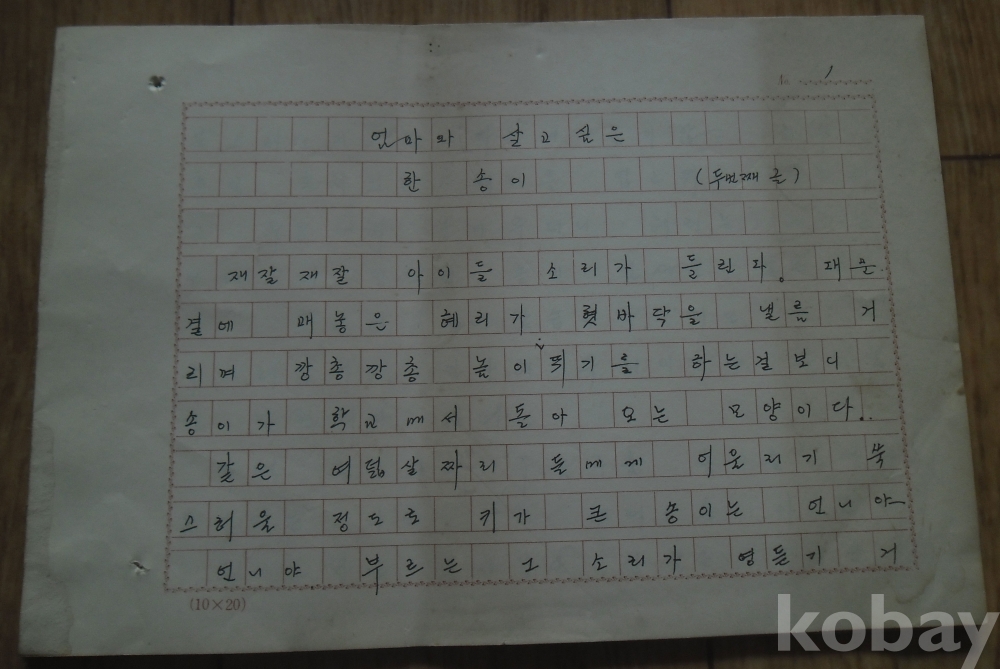 1
엄마와 살고싶은
한 송이 (두번째 글)
재잘재잘 아이들 소리가 들린다. 대문
곁에 매놓은 혜리가 혓바닥을 낼름 거
리며 깡총깡총 높이뛰기를 하는걸보니
송이가 학교에서 돌아 오는 모양이다.
같은 여덟살짜리 들에게 어울리기 쑥
스러울 정도로 키가 큰 송이는 언니야
언니야 부르는 그 소리가 영듣기 거
(10×20)
kobay